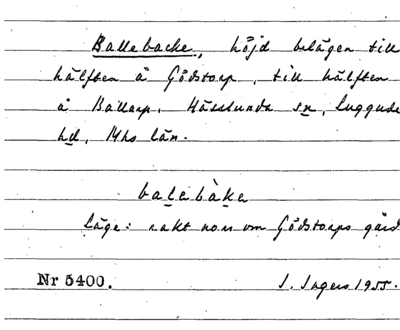 Ballebacke, höjd belägen till
hälften å Gödstorp, till hälften
å Ballarp. Hässlunda sn, Luggude
hd, Mhs län.
balabàka
Läge: rakt norr om Gödstorps gård
Nr 5400. I. Ingers 1955.